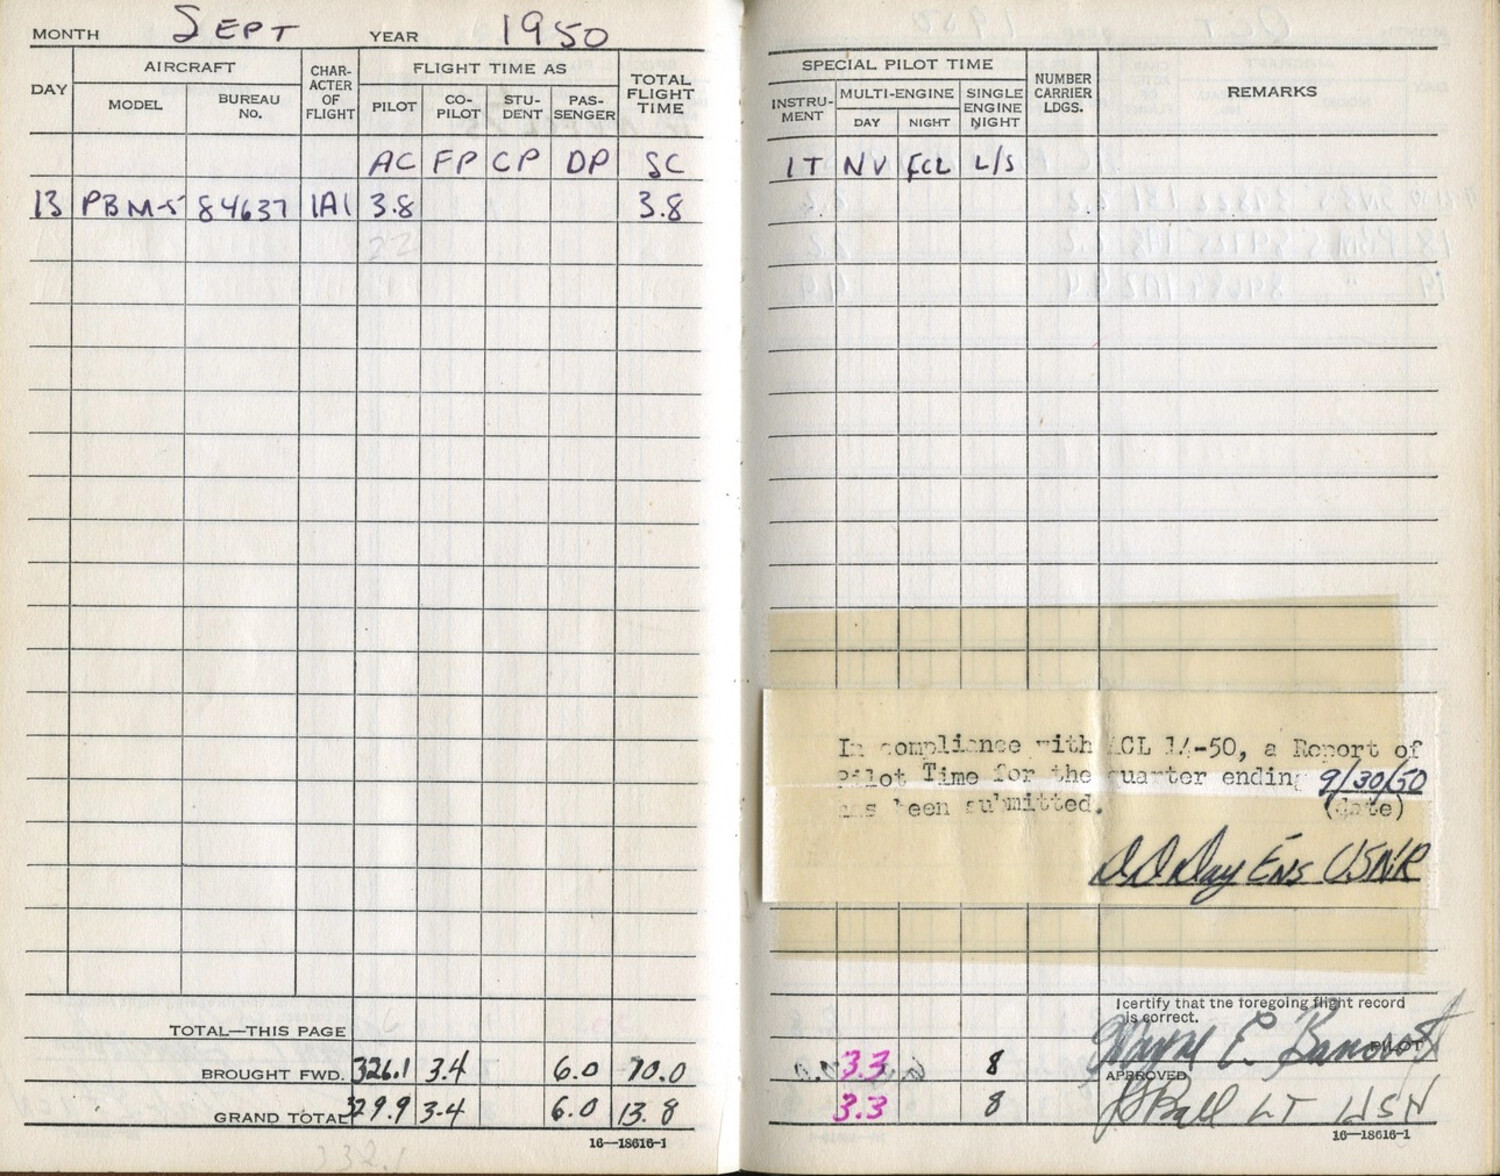 MONTH SEPT YEAR 1950
DAY AIRCRAFT CHAR-ACTER OF FLIGHT FLIGHT TIME AS TOTAL FLIGHT TIME
MODEL BUREAU No. PILOT CO-PILOT STU-DENT PAS-SENGER
AC FP CP DP SC
13 PBM-5 84637 1A1 3.8 3.8
22
TOTAL—THIS PAGE
BROUGHT FWD. 326.1 3.4 6.0 10.0
GRAND TOTAL 329.9 3.4 6.0 13.8
332.1
16—18616-1
SPECIAL PILOT TIME NUMBER CARRIER LDGS. REMARKS
INSTRU-MENT MULTI-ENGINE SINGLE ENGINE NIGHT
DAY NIGHT
IT NV FCL L/S
In compliance with ACL 14-50, a Report of
Pilot Time for the quarter ending 9/30/50
has been submitted. (date)
D D Day Ens USNR
I certify that the foregoing flight record
is correct.
Wayne E. Bancroft PILOT
3.3 8
APPROVED
3.3 8 Ball LT USN
16—18616-1